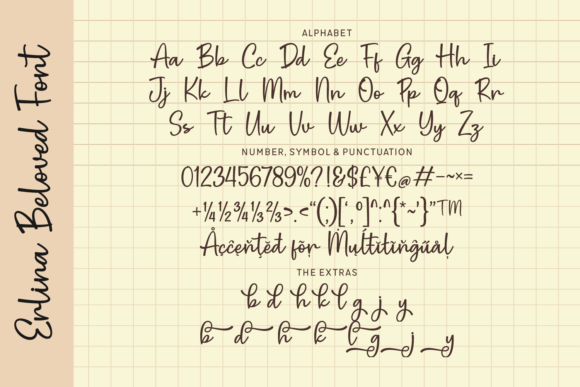 Erlina Beloved Font
ALPHABET
Aa Bb Cc Dd Ee Ff Gg Hh Ii
Jj Kk Ll Mm Nn Oo Pp Qq Rr
Ss Tt Uu Vv Ww Xx Yy Zz
NUMBER, SYMBOL & PUNCTUATION
0123456789%?!&$£¥€@#-~×=
+¼½¾⅓⅔>.<“(;)[‘,º]^:^{*~’}”™
Åçčėņţėđ föŗ Mųľţıťıňğűáŀ
THE EXTRAS
b d h k l g j y
b d h k l g j y